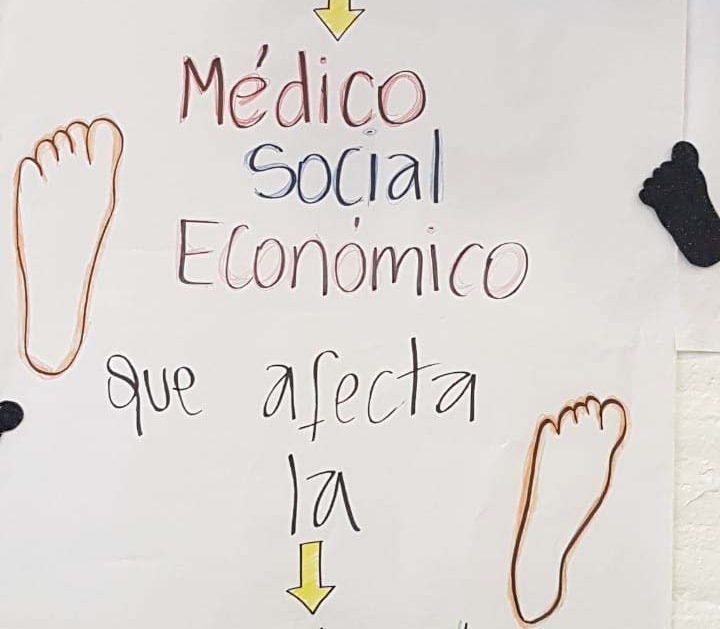 Médico
Social
Económico
que afecta
la